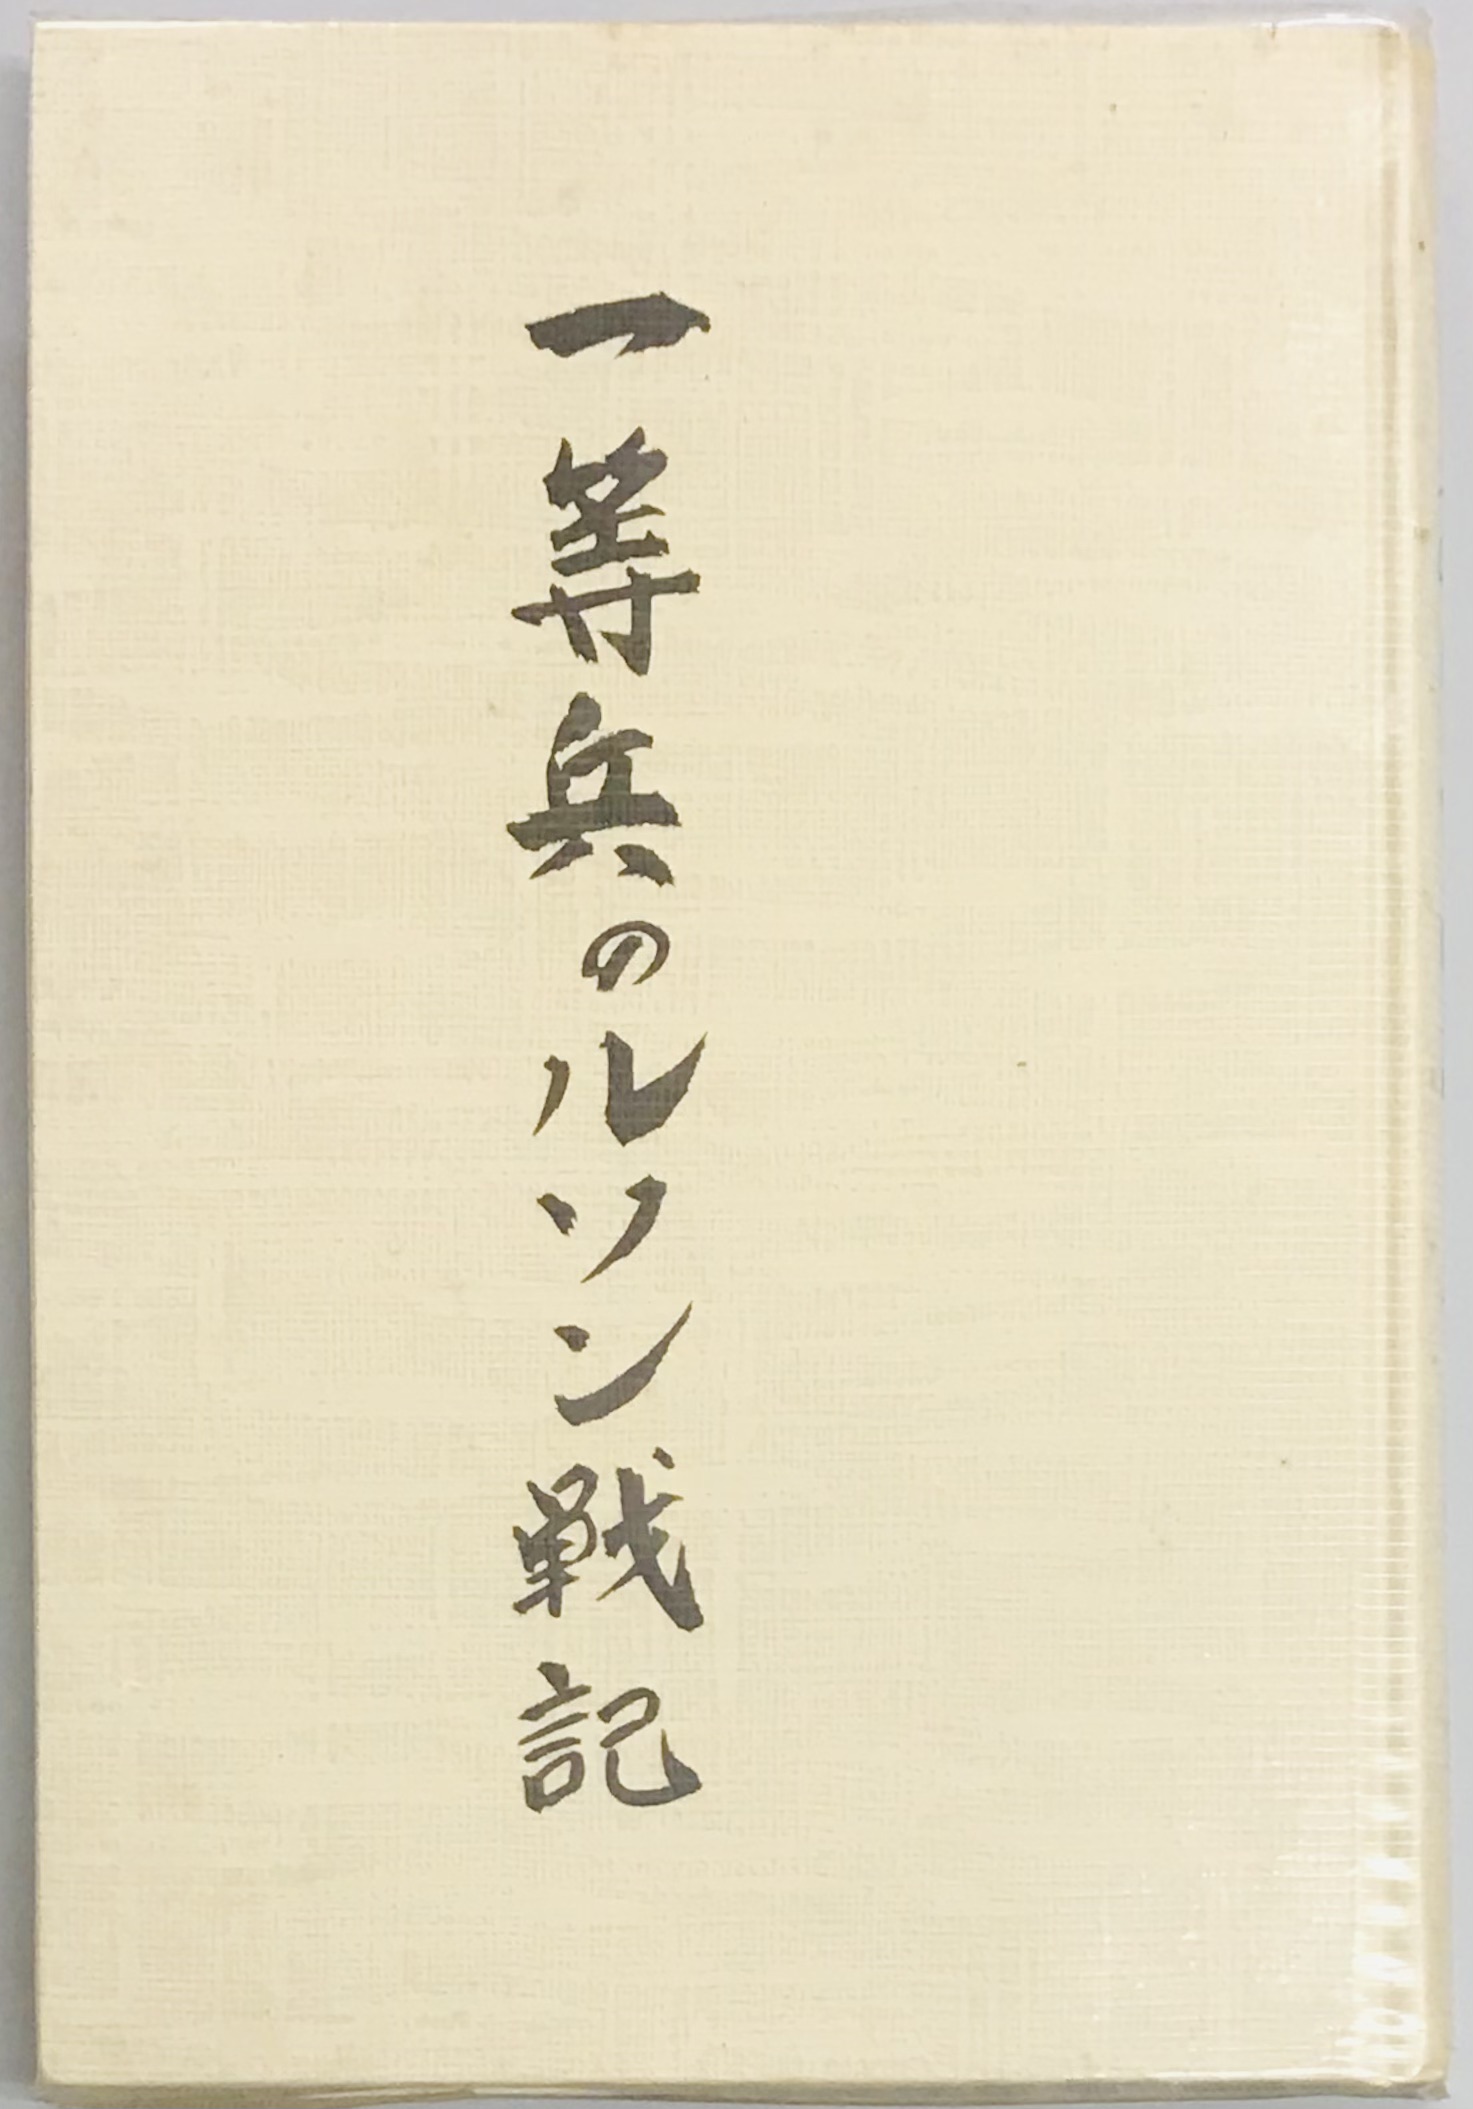 一等兵のルソン戦記